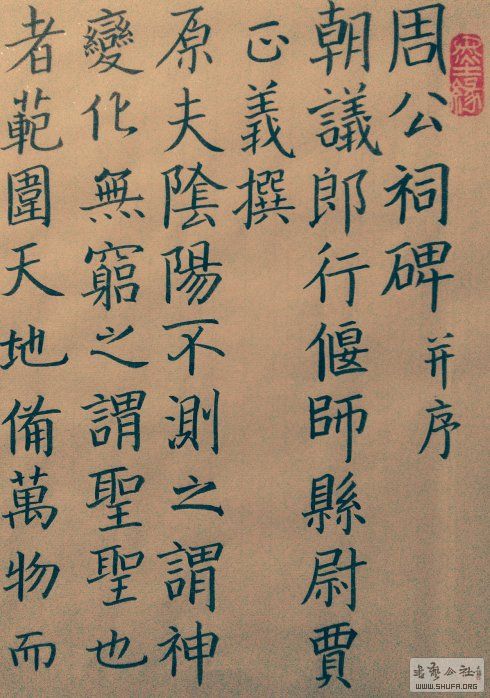 周公祠碑 并序
朝議郎行偃師縣尉賈
正義撰
原夫陰陽不測之謂神
變化無窮之謂聖聖也
者範圍天地備萬物而
WWW.SHUFA.ORG